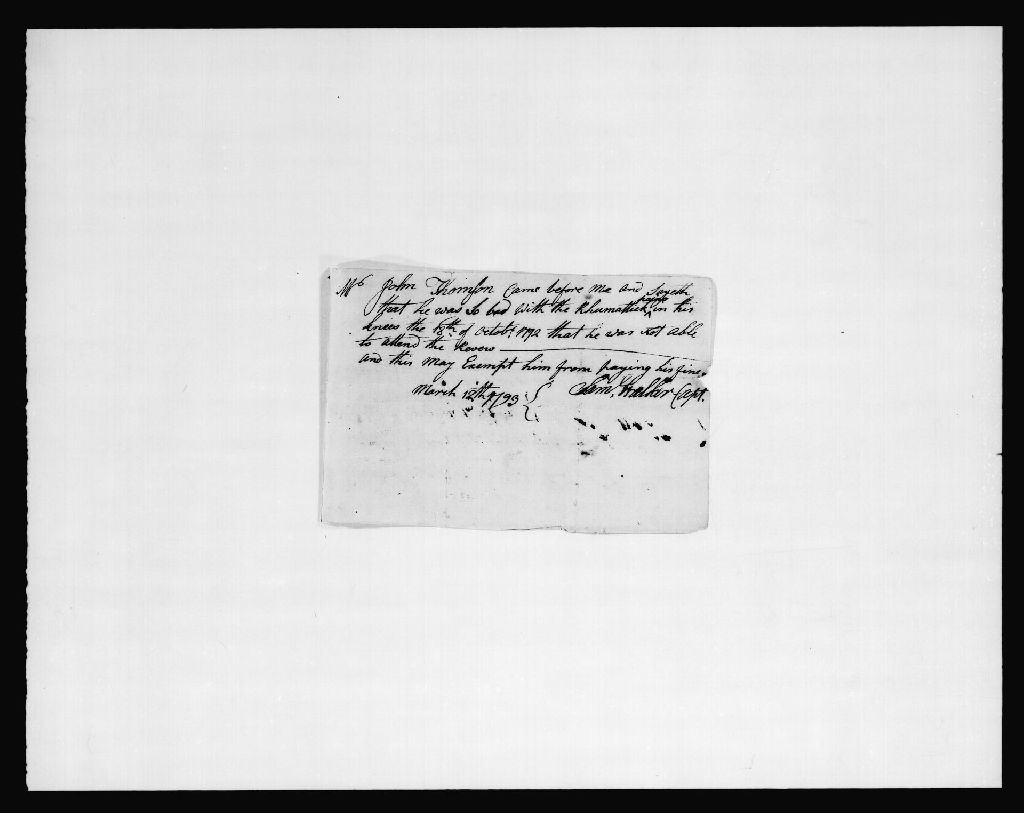 John Thomson Came before me and Sayeth
that he was So bad with the Rhumattick pains in his
knees the 18th of Octobr. 1792 that he was not able
to attend the Revew
and this May Exempt him from paying his fine
March 12th 1793 Sam. Walker Capt.